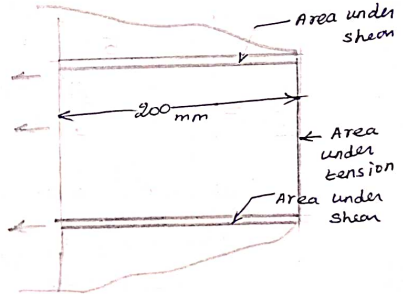 Area under
shear
200 mm
Area
under
tension
Area under
shear